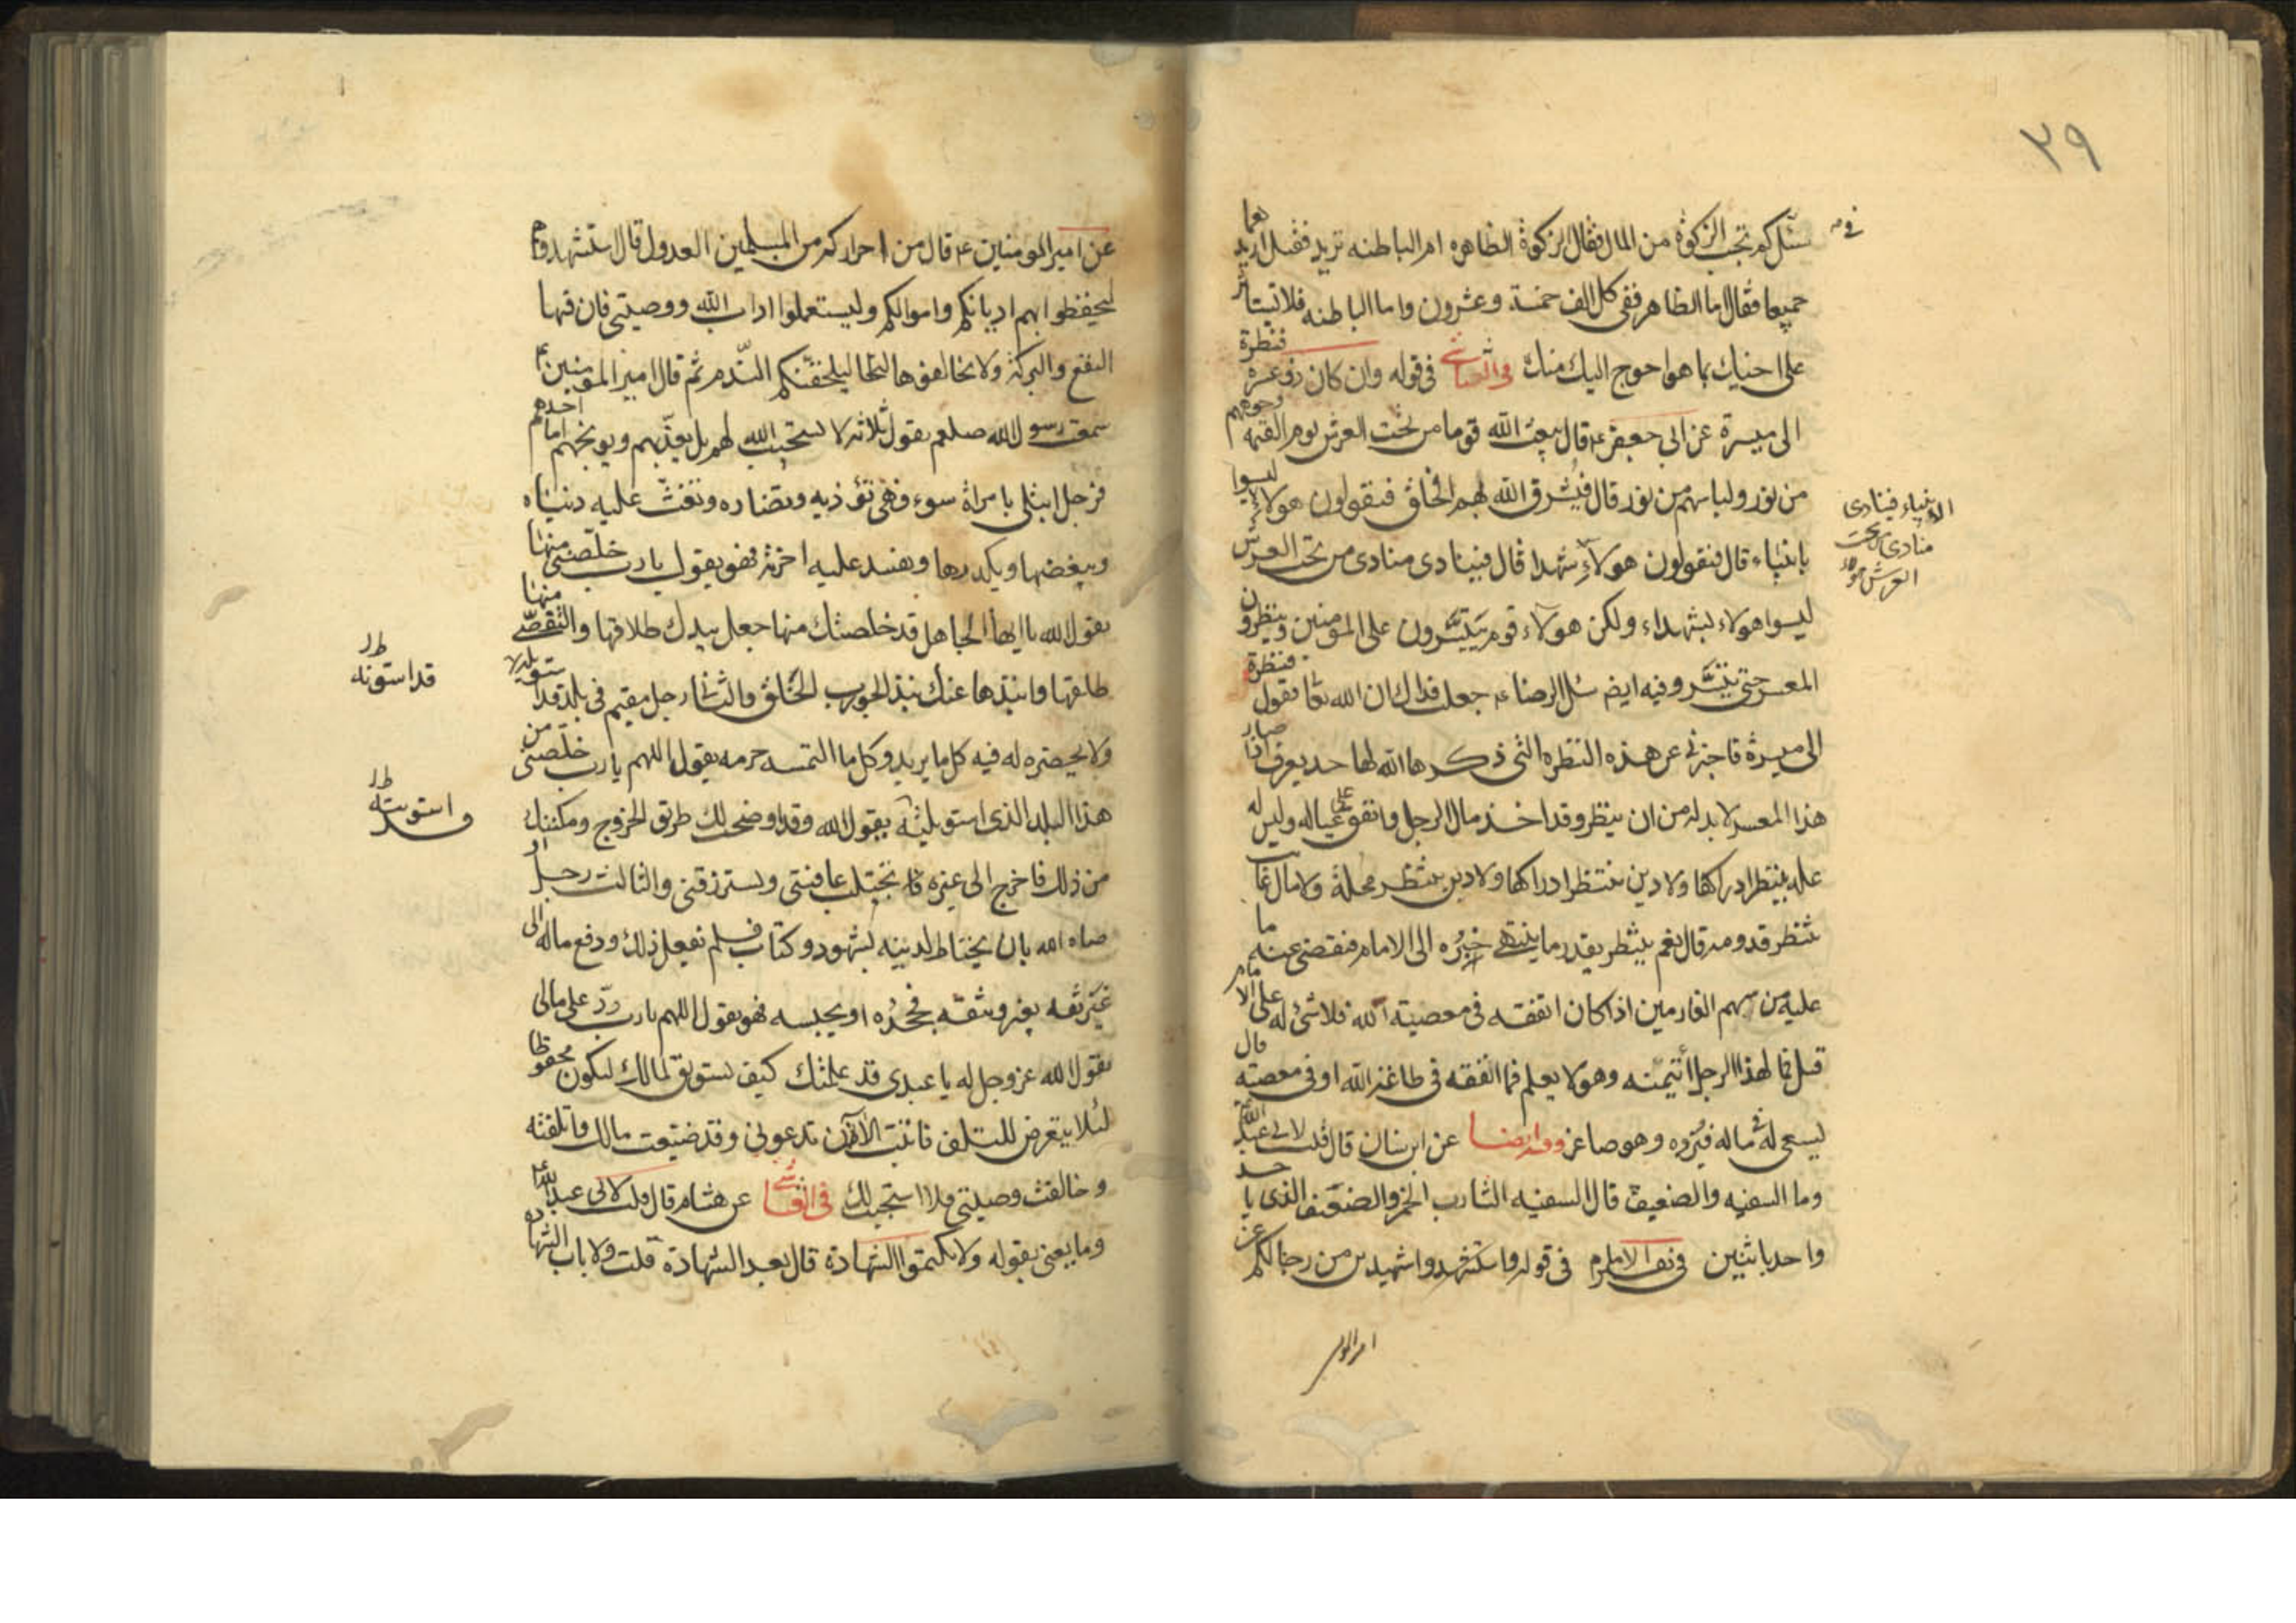 ٣٩
سئل كم تجب الزكوة من المال فقال الزكوة الظاهره ام الباطنه تريد فقيل اريدهما
جميعا فقال اما الظاهر ففى كل الف خمسة وعشرون واما الباطنه فلا تستاثر
على اخيك بما هو احوج اليك منك وفى العياشى فى قوله وان كان ذو عسرة فنظرة
الى ميسرة عن ابى جعفر ع قال يبعث الله قوما من تحت العرش يوم القيمه وجوههم
من نور ولباسهم من نور قال فيشرق الله لهم الخلق فيقولون هولاء ليسوا
بانبياء قال فيقولون هولاء شهدا قال فينادى منادى من تحت العرش
ليسوا هولاء بشهداء ولكن هولاء قوم يتيسرون على المومنين وينظرون
المعسر حتى تيسر وفيه ايض سئل الرضا ع جعلت فداك ان الله تعا يقول فنظرة
الى ميسرة فاخبرنى عن هذه النظره التى ذكرها الله لها حد يعرف اذا صار
هذا المعسر لا بد له من ان ينظر وقد اخذ مال الرجل وانفق على عياله وليس له
غله ينتظر ادراكها ولا دين ينتظر محله ولا مال غايب
ينتظر قدومه قال نعم ينتظر بقدر ما ينتهى خبره الى الامام فيقضى عنه ما
عليه من سهم الغارمين اذا كان انفقه فى معصية الله فلا شئ له على الامام
قيل فما لهذا الرجل ائتمنه وهو لا يعلم فيما انفقه فى طاعة الله او فى معصيته قال
يسعى له فى ماله فيرده وهو صاغر وفيه ايضا عن ابن سنان قال قلت لابى عبد الله
وما السفيه والضعيف قال السفيه الشارب الخمر والضعيف الذى ياخذ
واحد باثنين فى تف الامام فى قوله واستشهدوا شهيدين من رجالكم
الانبياء فينادى
منادى من تحت
العرش هولاء
عن امير المومنين ع قال من احراركم من المسلمين العدول قال استشهدوهم
لتحفظوا بهم اديانكم واموالكم وليستعملوا اداب الله ووصيتى فان فيها
النفع والبركة ولا تخالفوها ليلحقنكم الندم ثم قال امير المومنين
سمعت رسول الله صلعم يقول ثلاثه لا يستجيب الله لهم بل يعذبهم ويوبخهم اما احدهم
فرجل ابتلى بامراة سوء فهى تؤذيه وتضاره وتفسد عليه دنياه
ويبغضها ويكدرها ويفسد عليه اخرته فهو يقول يا رب خلصنى منها
يقول الله يا ايها الجاهل قد خلصتك منها جعل بيدك طلاقها والتفصى منها
طلقها وانبذها عنك نبذ الجورب الخلق والثانى رجل مقيم فى بلد قد
ولا يحضره له فيه كل ما يريد وكل ما التمسه حرمه يقول اللهم يا رب خلصنى من
هذا البلد الذى استوبلته يقول الله وقد اوضحت لك طرق الخروج ومكنتك
من ذلك فاخرج الى غيره تجتلب عافيتى وتسترزقنى والثالث رجل
صاه الله بان يحتاط لدينه بشهود وكتاب فلم يفعل ذلك ودفع ماله الى
غير ثقه بغير وثقه فجحده او يحبسه فهو يقول اللهم يا رب رد على مالى
يقول الله عز وجل له يا عبدى قد علمتك كيف تستوثق لمالك ليكون محفوظا
لئلا يتعرض للتلف فابيت الان تدعونى وقد ضيعت مالك واتلفته
وخالفت وصيتى فلا استجيب لك فى العياشى عن هشام قال قلت لابى عبد الله ع
وما يعنى بقوله ولا تكتموا الشهادة قال بعد الشهادة قلت ولا ياب الشهداء